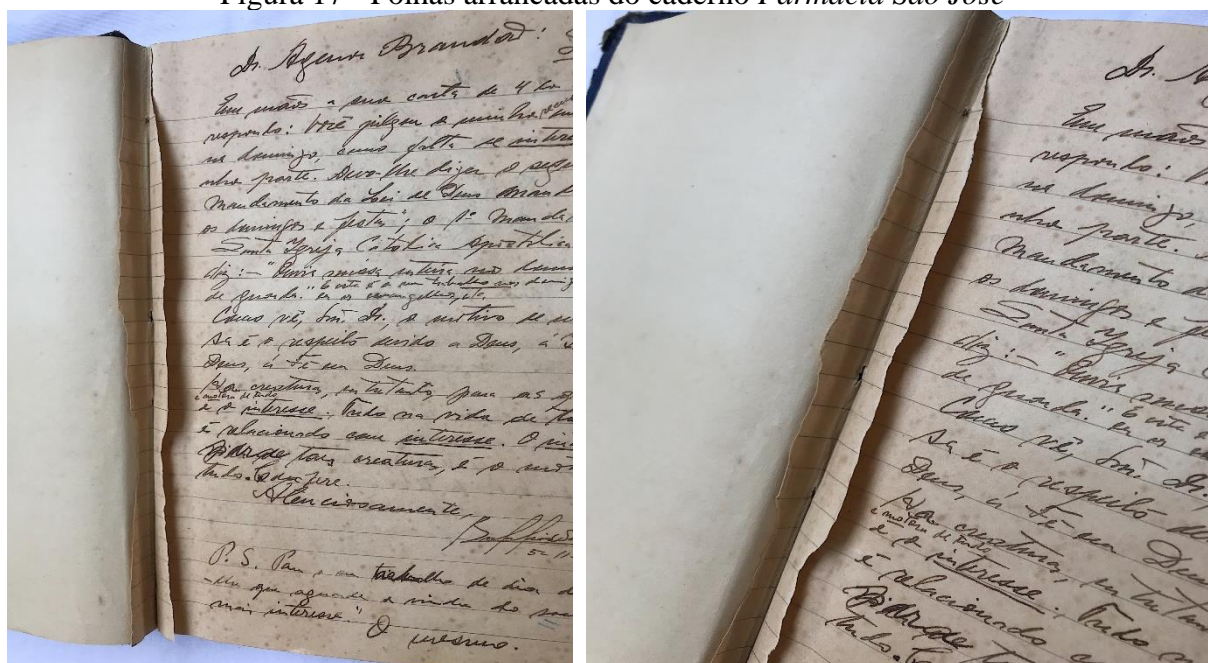 Figura 17 - Folhas arrancadas do caderno Farmácia São José
Dr. Agenor Brandão:
Em mãos a sua carta de 4 do
respondo: Você julgou a minha
no domingo, como falta de intere
nha parte. Devo-lhe dizer o segu
Mandamento da Lei de Deus manda
os domingos e festas"; o 1º Manda
Santa Igreja Católica Apostólica
diz: - "Ouvir missa inteira nos dom
de guarda."
Como vê, Snr. Dr., o motivo de mi
sa é o respeito devido a Deus, à
Deus, à Fé em Deus.
creatura, entretanto para as
é o interesse. Tudo na vida de
é relacionado com interesse. O in
creatura, é o mo
tudo. Confere.
Atenciosamente,
P. S. Para o trabalho de dia
que aguarde a vinda do
mais interesse"
O mesmo.
Dr. A
Em mãos
respondo: V
no domingo,
nha parte.
Mandamento d
os domingos e fe
Santa Igreja
diz: - "Ouvir miss
de guarda."
Como vê, Snr. Dr.,
sa é o respeito de
Deus, à Fé em Deus
creatura, en
é o interesse. Tudo
é relacionado
tudo.